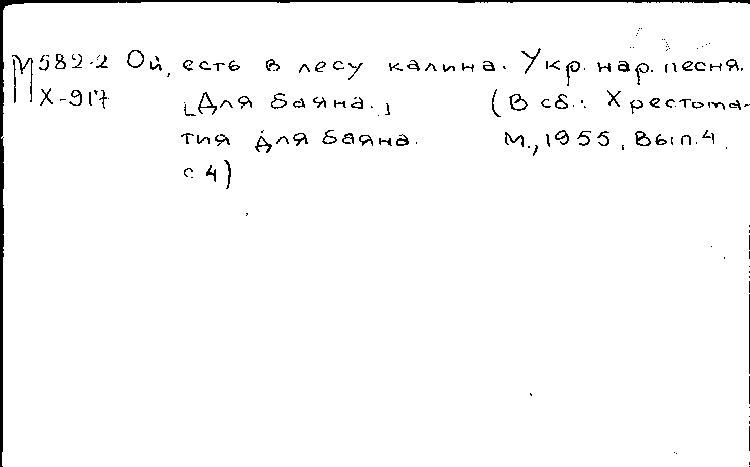 М582-2 Ой, есть в лесу калина. Укр. нар. песня.
Х-917 [Для баяна.] (В сб.: Хрестома-
тия для баяна. М., 1955, Вып. 4.
с 4)